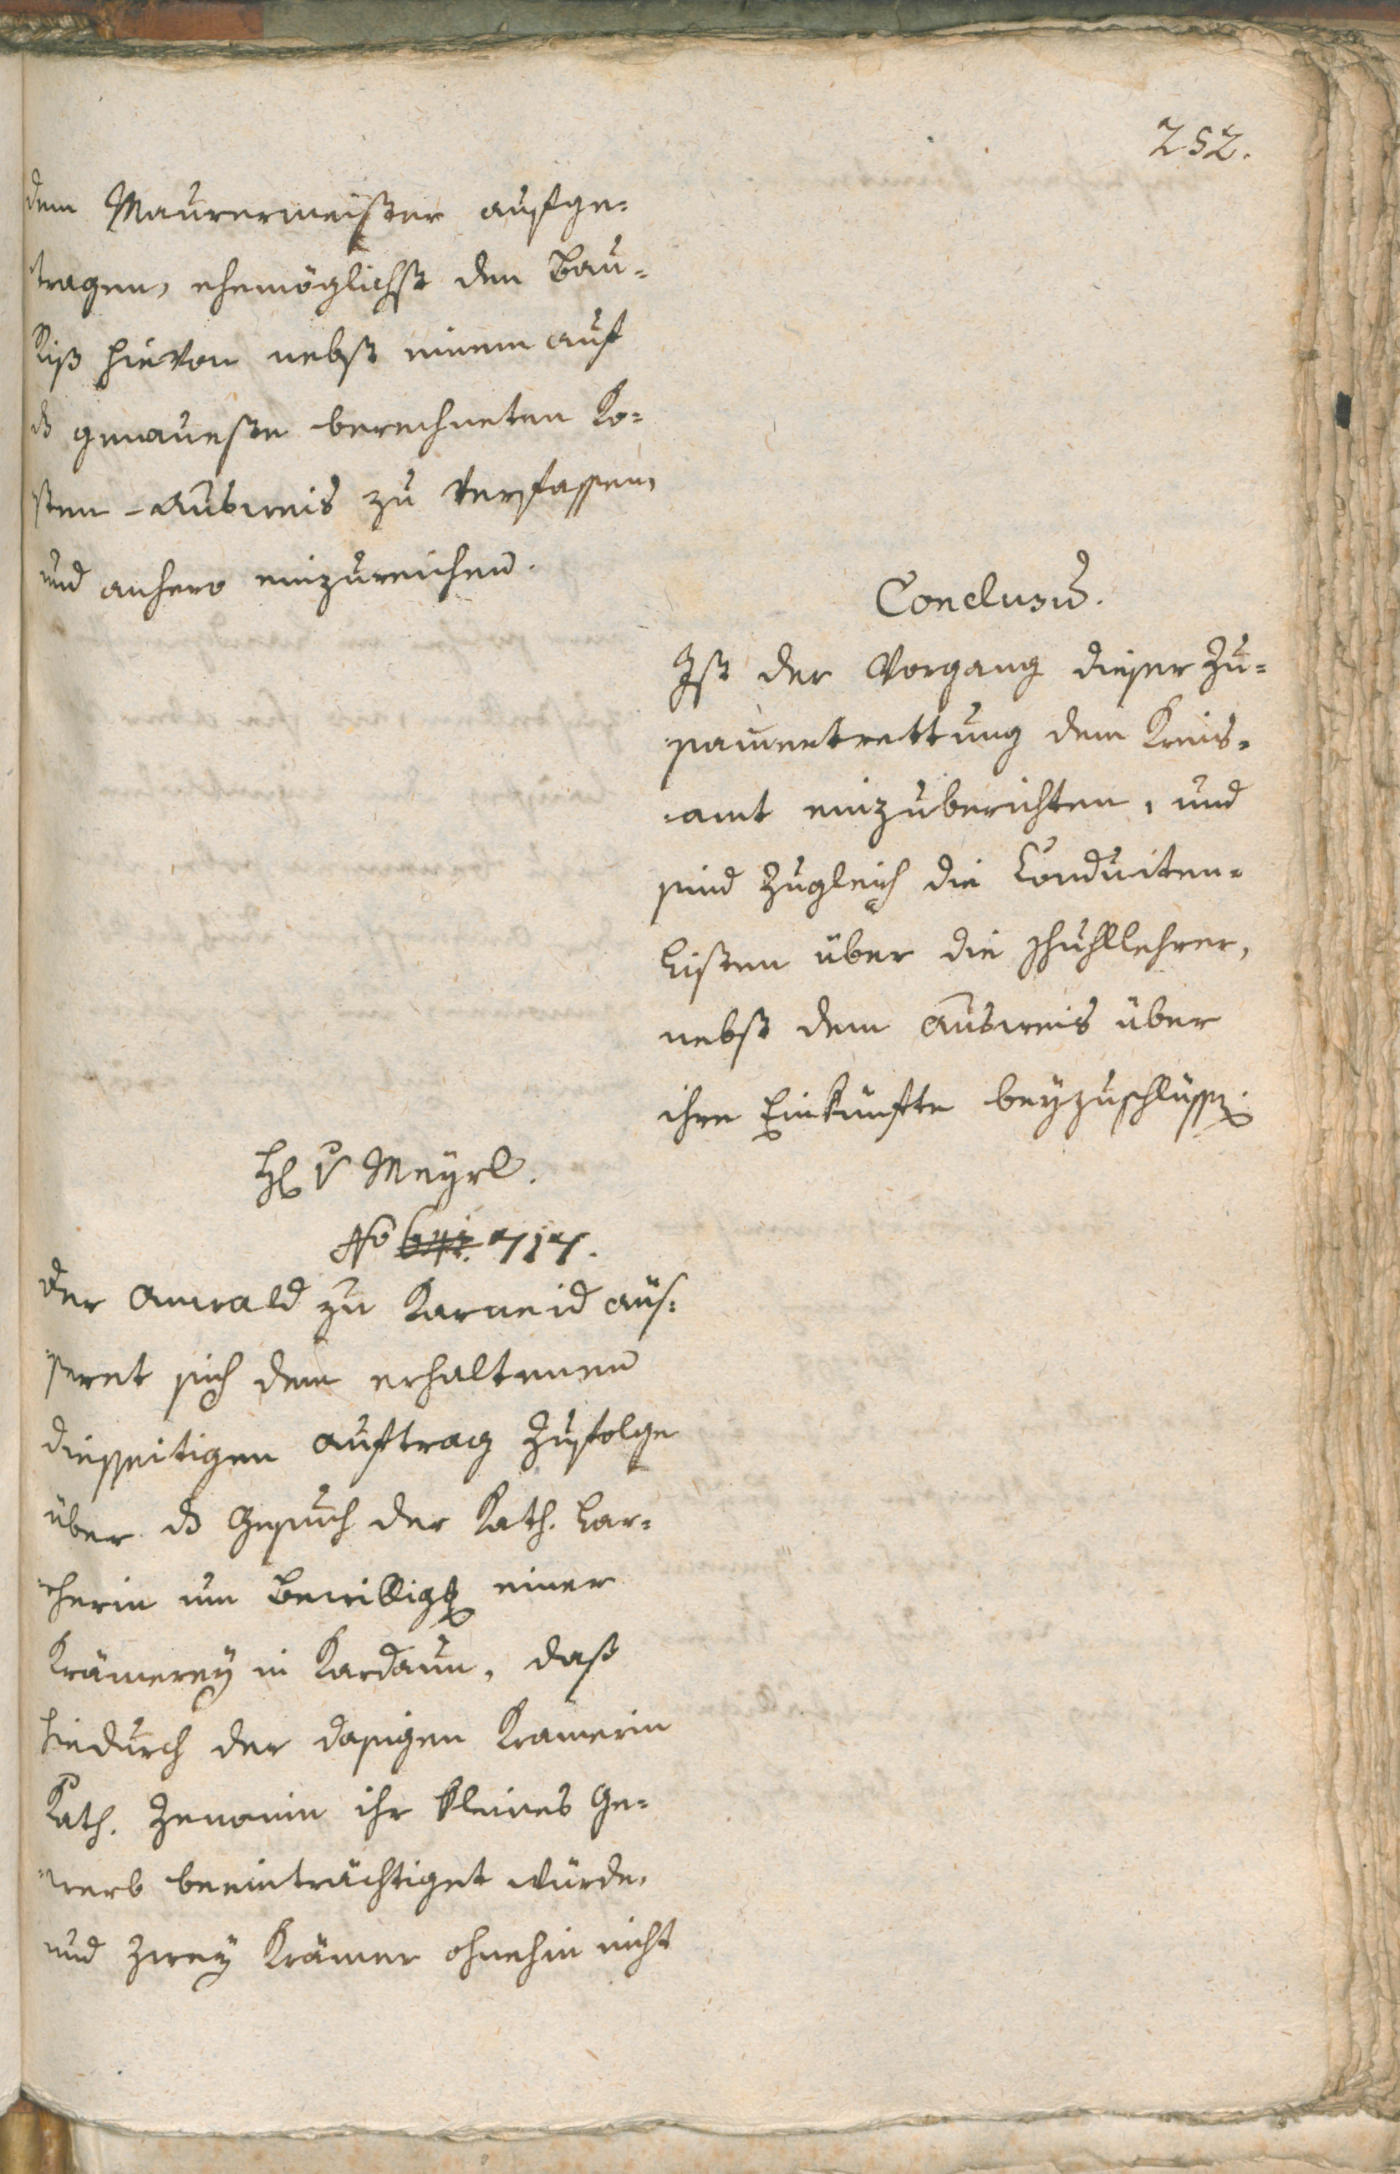 252.
dem Maurermeister aufge=
tragen, ehemöglichst den Bau=
Riß hievon nebst einem auf
ds genaueste berechneten Ko=
sten-Ausweis zu verfassen,
und anhero einzureichen.
Conclusum.
Ist der Vorgang dieser Zu=
sam̅entrettung dem Kreis=
amt einzuberichten, und
sind zugleich die Conduiten=
Listen über die Schullehrer,
nebst dem Ausweis über
ihre Einkünfte beyzuschlüssen.
H v Meyrl.
No 717.
Der Anwald zu Karneid äus=
seret sich dem erhaltenen
diesseitigen Auftrag zufolge
über ds Gesuch der Kath. Lar=
cherin um Bewilligg einer
Krämerey in Kardaun, daß
hiedurch der dasigen Kramerin
Kath. Zenonin ihr kleines Ge=
werb beeinträchtiget würde,
und zwey Krämer ohnehin nicht